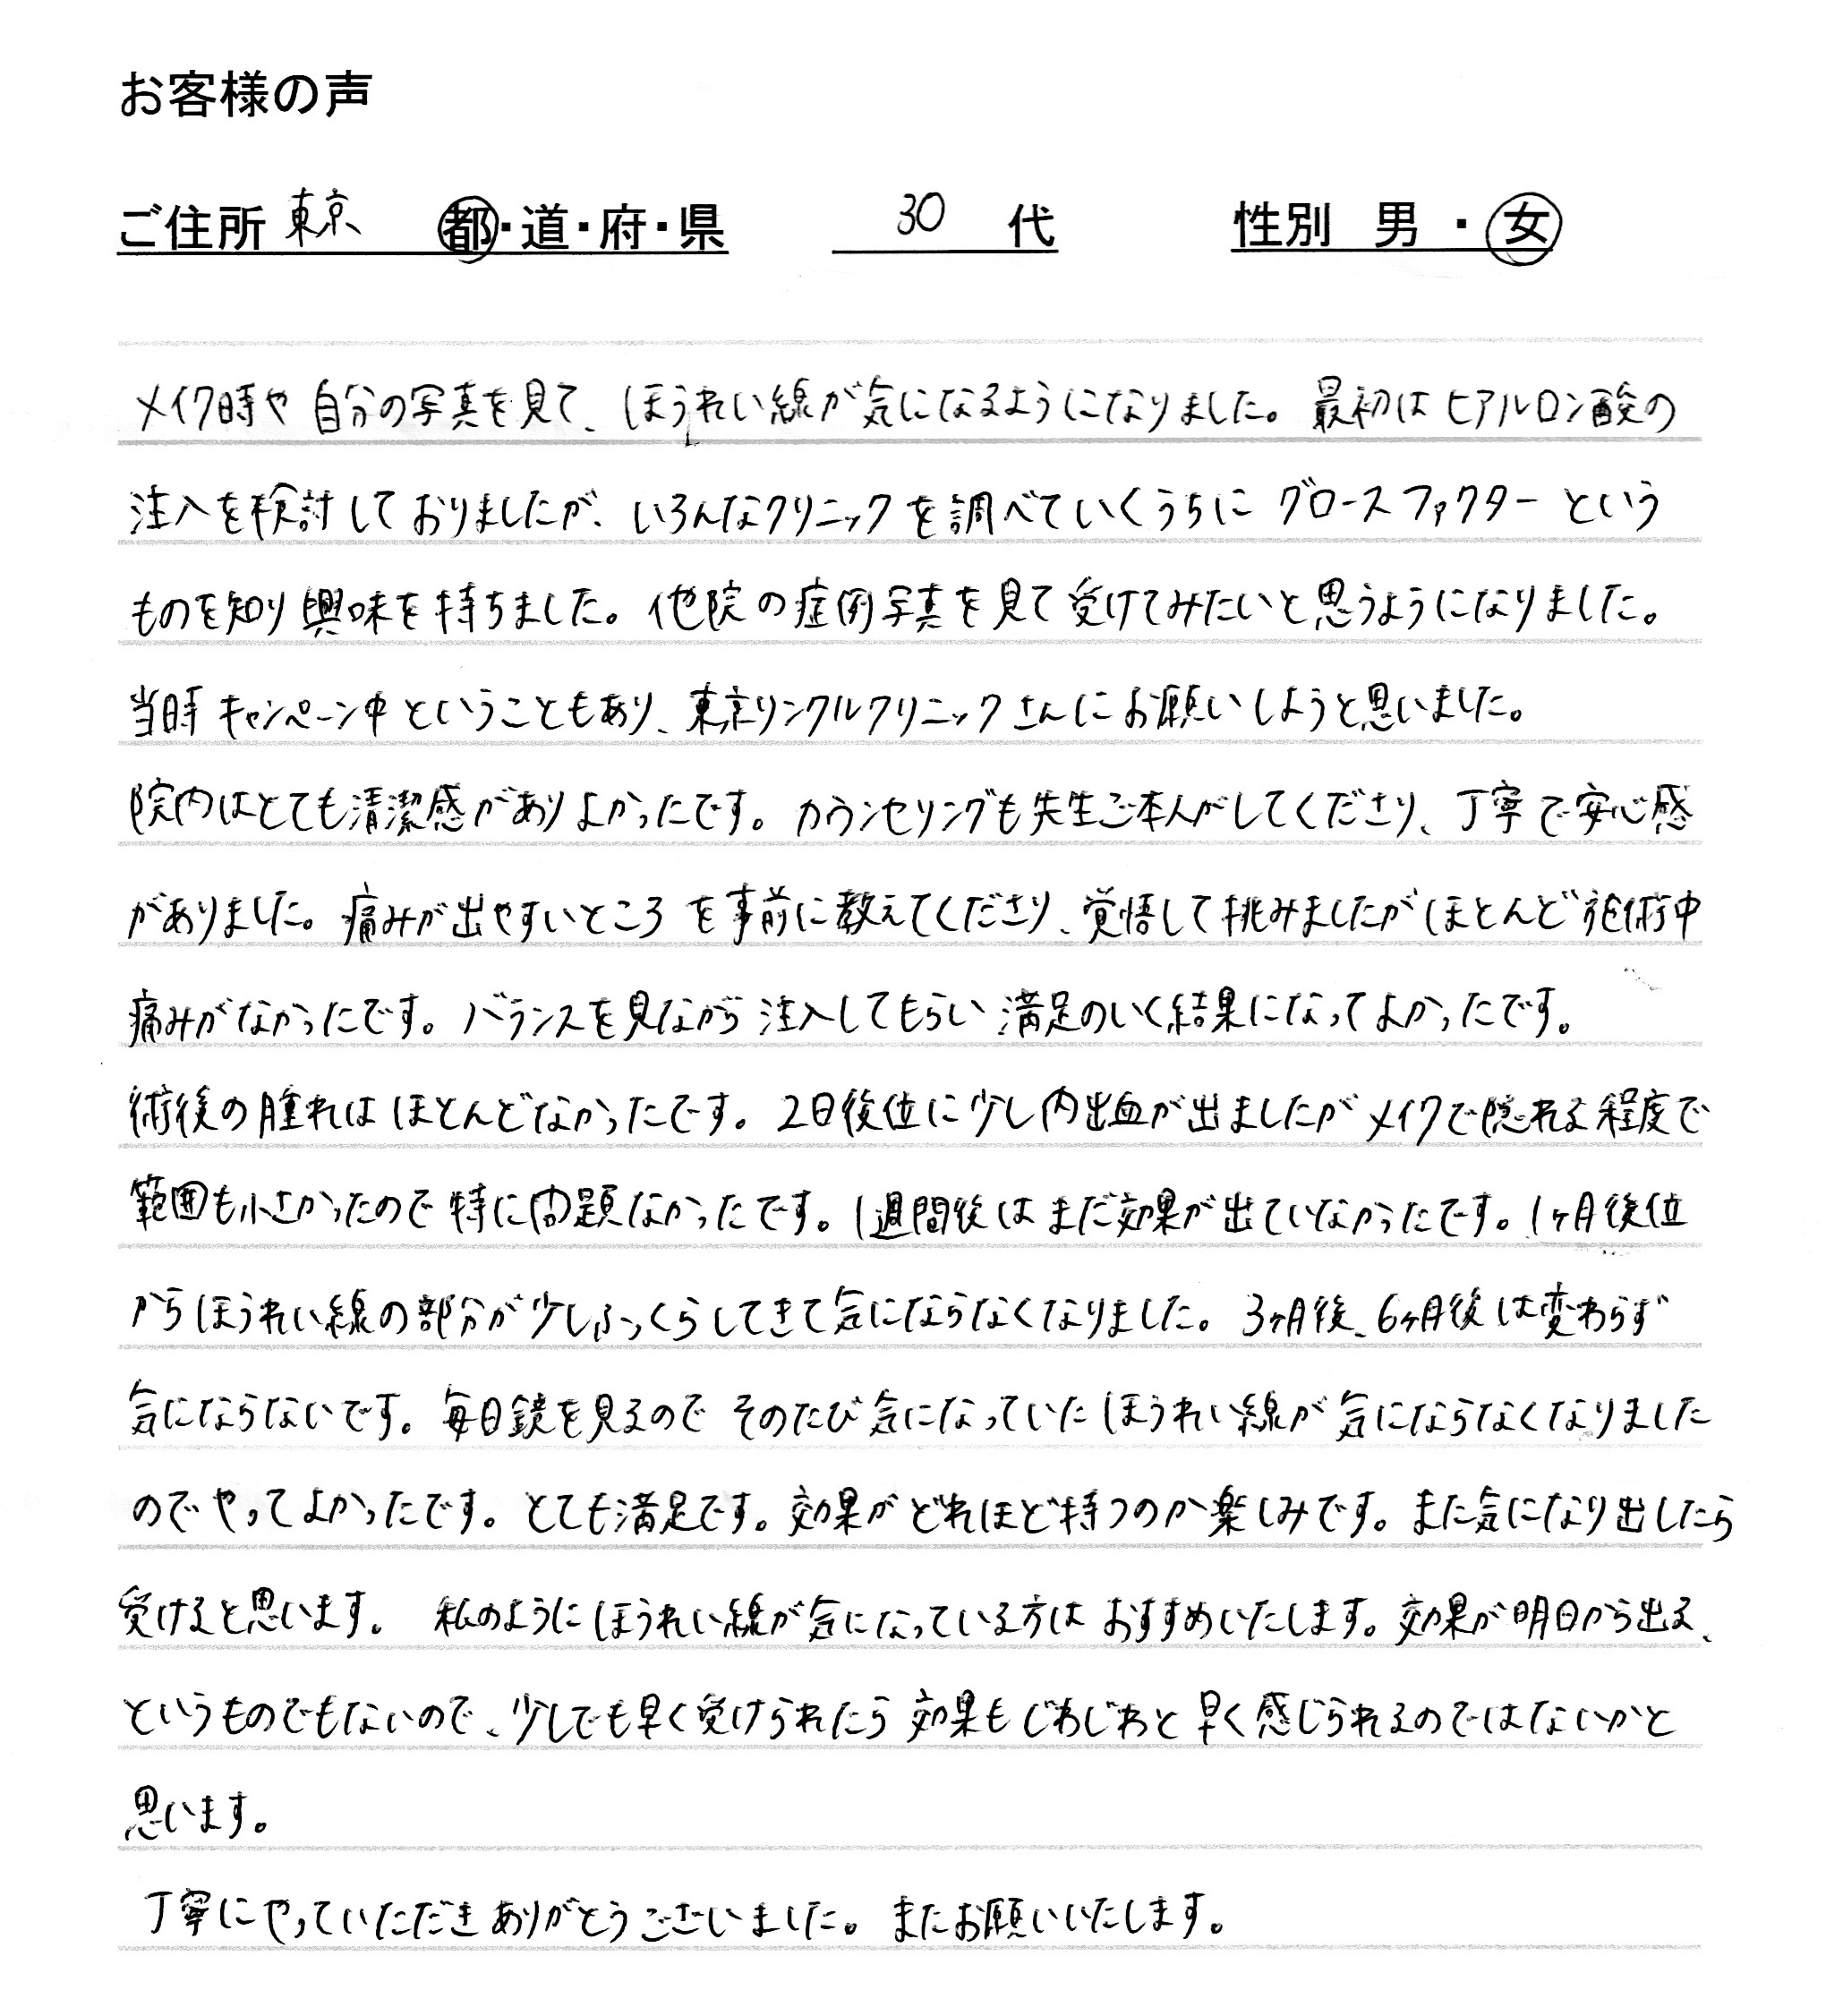 お客様の声
ご住所 東京 都・道・府・県 30 代 性別 男 ・ 女
メイク時や自分の写真を見て、ほうれい線が気になるようになりました。最初はヒアルロン酸の
注入を検討しておりましたが、いろんなクリニックを調べていくうちに グロースファクター という
ものを知り興味を持ちました。他院の症例写真を見て受けてみたいと思うようになりました。
当時キャンペーン中ということもあり、東京リンクルクリニックさんにお願いしようと思いました。
院内はとても清潔感がありよかったです。カウンセリングも先生ご本人がしてくださり、丁寧で安心感
がありました。痛みが出やすいところを事前に教えてくださり、覚悟して挑みましたがほとんど施術中
痛みがなかったです。バランスを見ながら注入してもらい満足のいく結果になってよかったです。
術後の腫れはほとんどなかったです。2日後位に少し内出血が出ましたがメイクで隠れる程度で
範囲も小さかったので特に問題なかったです。1週間後はまだ効果が出ていなかったです。1ヶ月後位
からほうれい線の部分が少しふっくらしてきて気にならなくなりました。3ヶ月後、6ヶ月後は変わらず
気にならないです。毎日鏡を見るのでそのたび気になっていたほうれい線が気にならなくなりました
のでやってよかったです。とても満足です。効果がどれほど持つのか楽しみです。また気になり出したら
受けると思います。 私のようにほうれい線が気になっている方はおすすめいたします。効果が明日から出る、
というものでもないので、少しでも早く受けられたら効果もじわじわと早く感じられるのではないかと
思います。
丁寧にやっていただきありがとうございました。またお願いいたします。